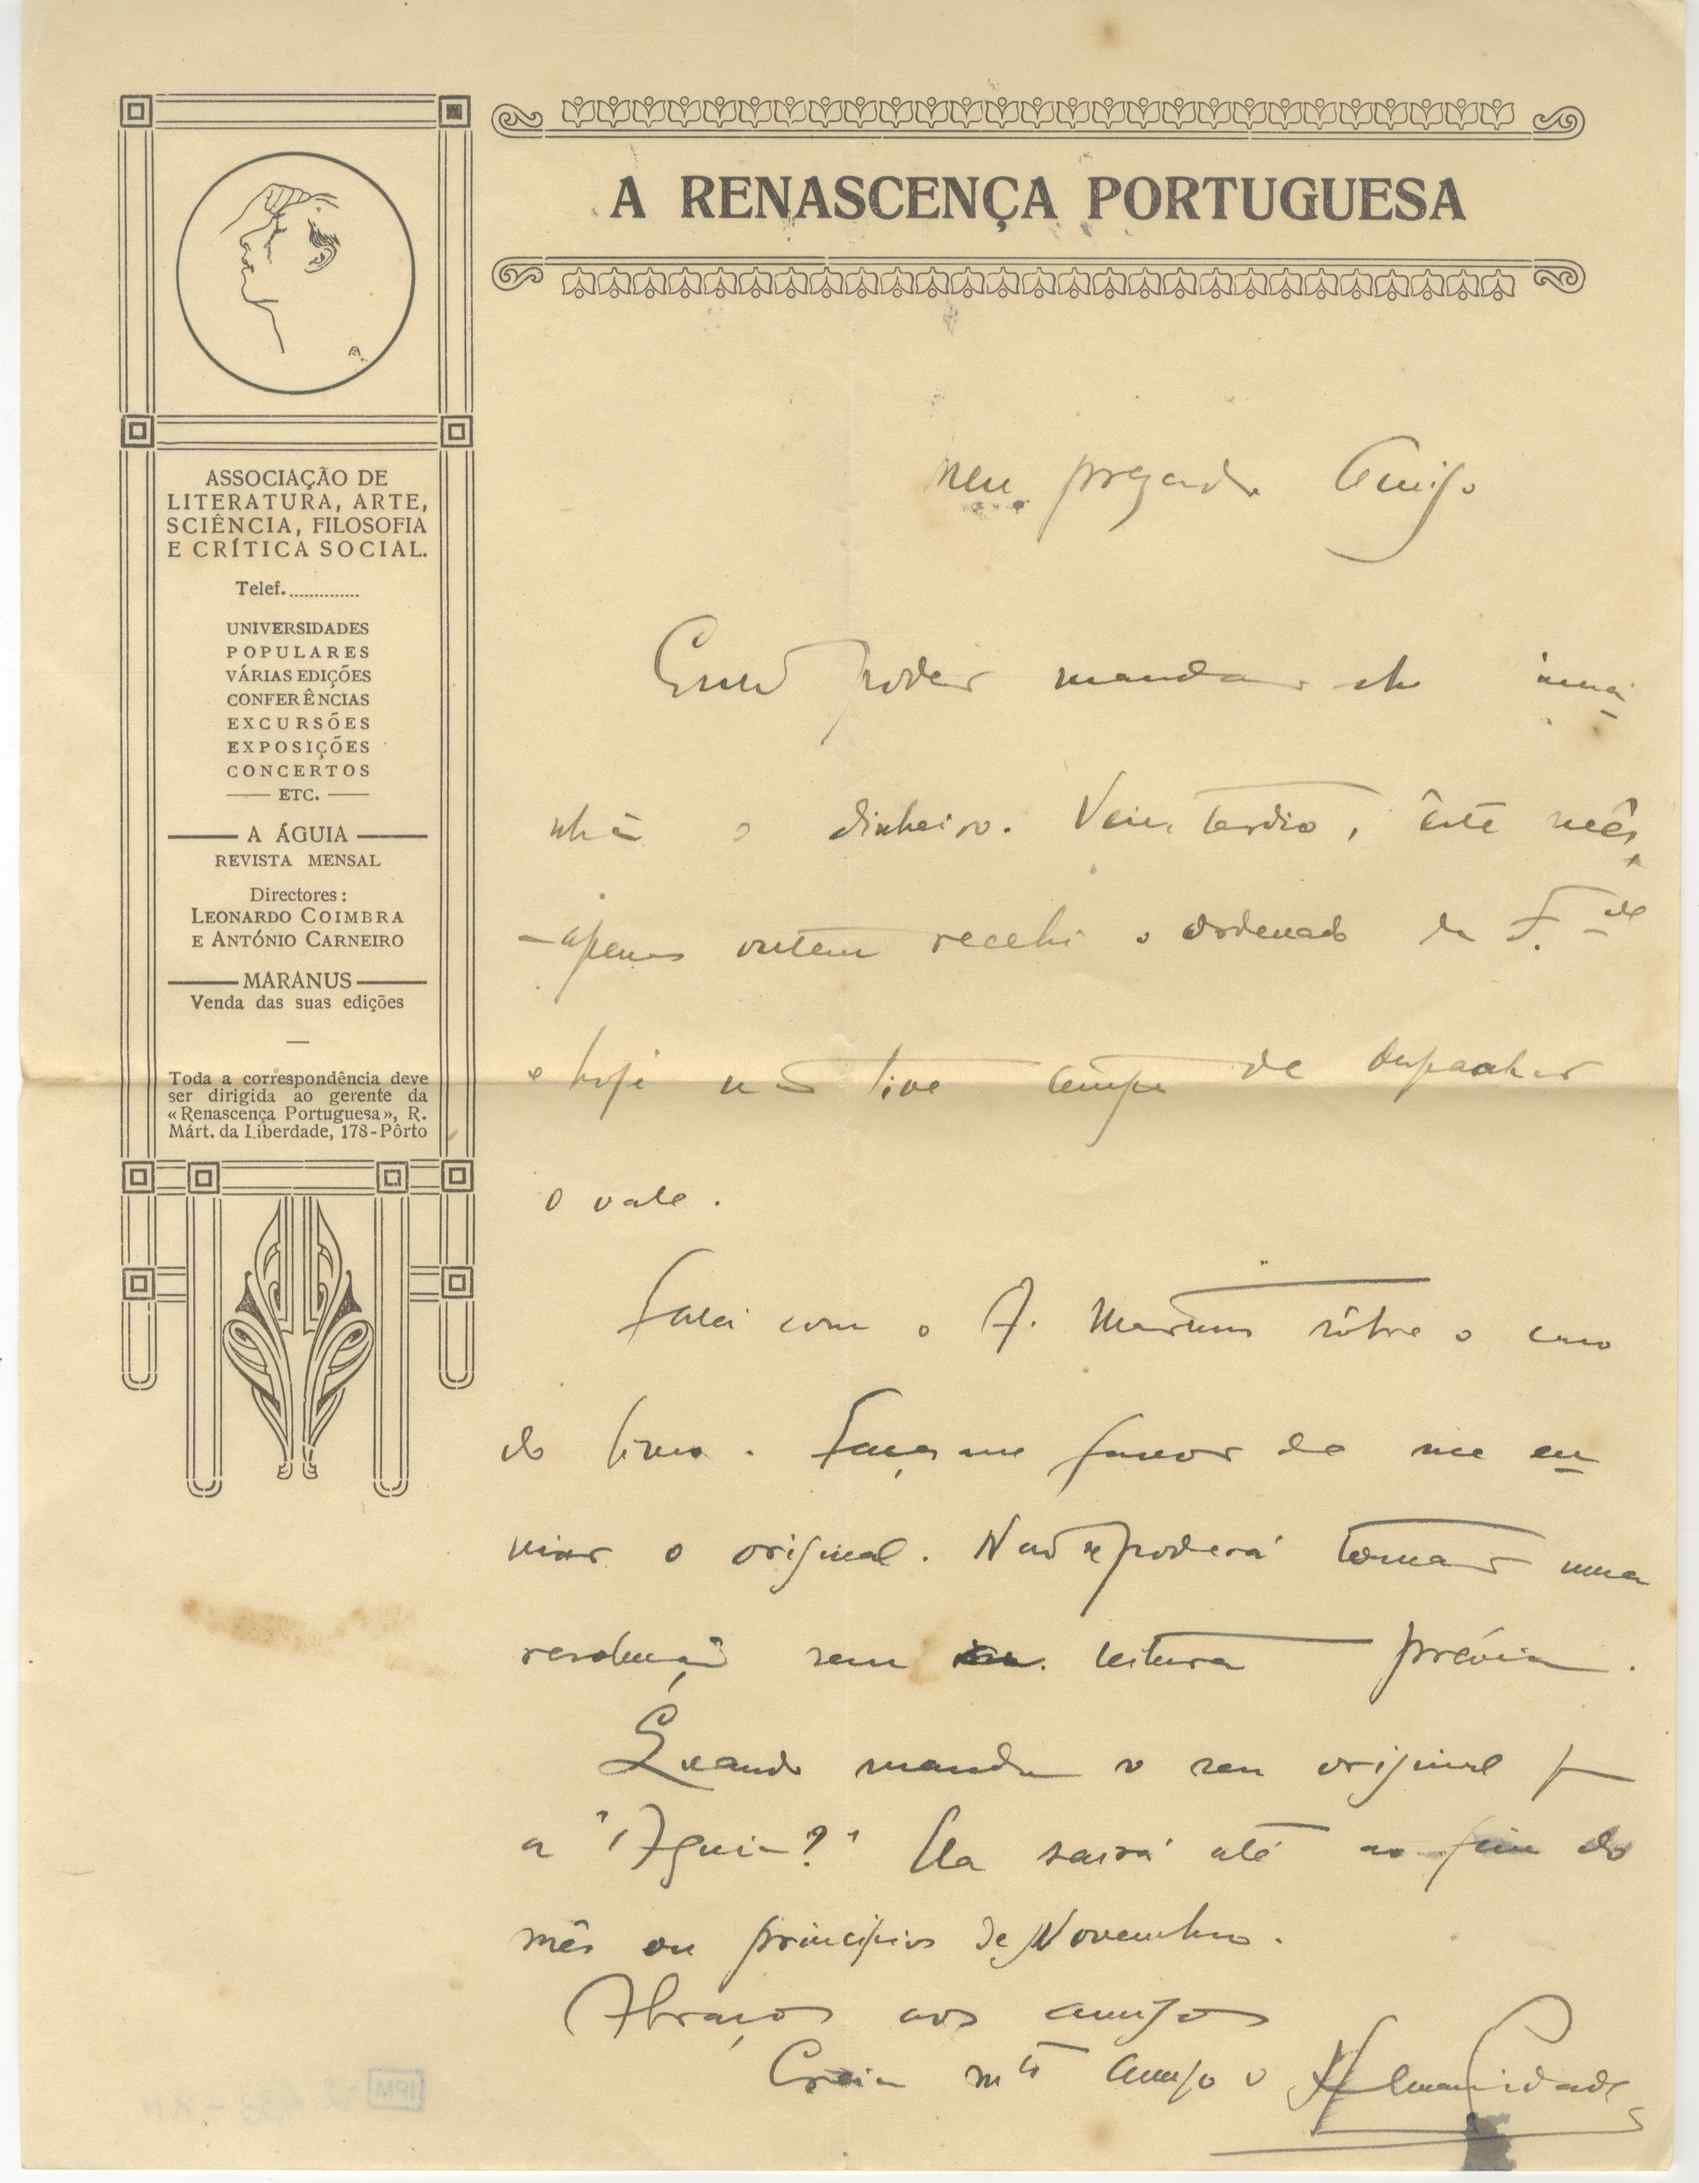 A RENASCENÇA PORTUGUESA
ASSOCIAÇÃO DE
LITERATURA, ARTE,
SCIÊNCIA, FILOSOFIA
E CRÍTICA SOCIAL.
Telef. ..............
UNIVERSIDADES
POPULARES
VÁRIAS EDIÇÕES
CONFERÊNCIAS
EXCURSÕES
EXPOSIÇÕES
CONCERTOS
ETC.
A ÁGUIA
REVISTA MENSAL
Directores:
LEONARDO COIMBRA
E ANTÓNIO CARNEIRO
MARANUS
Venda das suas edições
Toda a correspondência deve
ser dirigida ao gerente da
«Renascença Portuguesa», R.
Márt. da Liberdade, 178-Pôrto
Meu prezado Amigo
poder mandar
nhã o dinheiro. Veiu tardio, êste mês,
- apenas ontem recebi o ordenado da F.de
e hoje não tive tempo de despachar
o vale.
Falei com o A. Martins sôbre o caso
do livro. Faça-me favor de me en
viar o original. Não se poderá tomar uma
resolução sem leitura prévia.
Quando manda o seu original p
a "Aguia?" Ela sairá até ao fim do
mês ou princípios de Novembro.
Abraços aos amigos
Creia mto amigo o Hernani Cidade